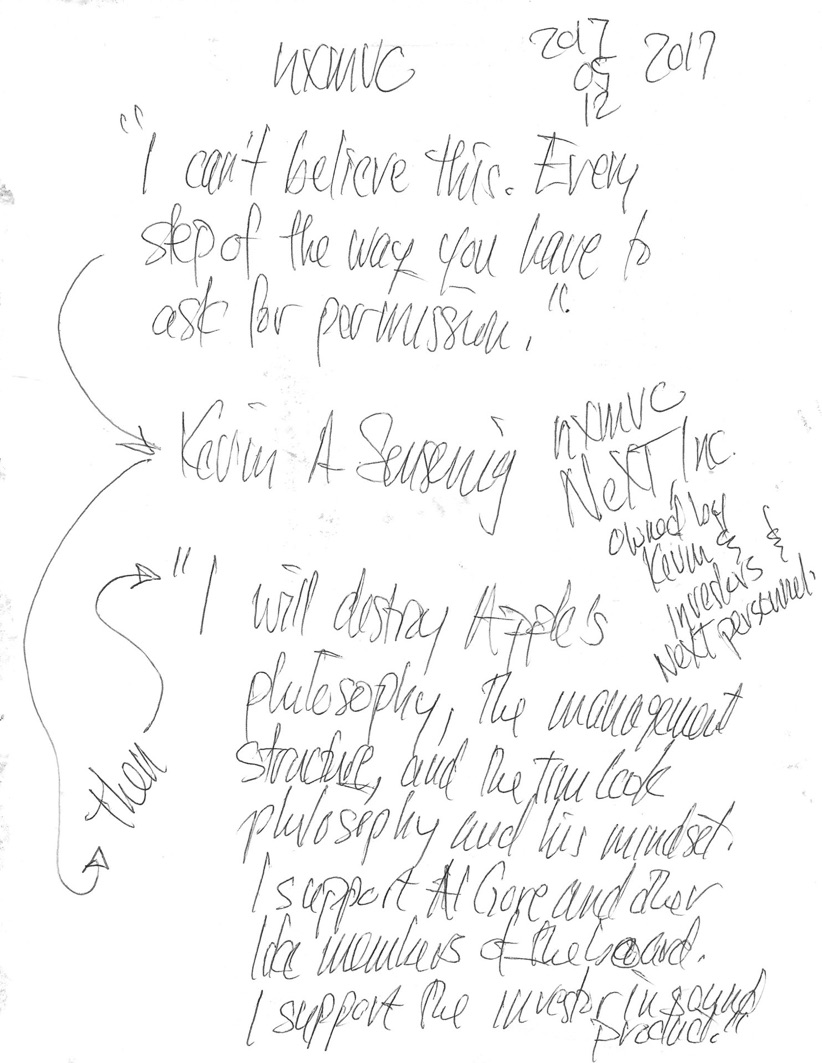 nxmvc
2017
05
12
2017
"I can't believe this. Every
step of the way you have to
ask for permission."
Kevin A Sensenig
nxmvc
NeXT Inc.
owned by
Kevin &
investors &
NeXT personnel.
then
"I will destroy Apple's
philosophy, the management
structure, and the Tim Cook
philosophy and his mindset.
I support Al Gore and other
like members of the board.
I support the investor in sound
product."